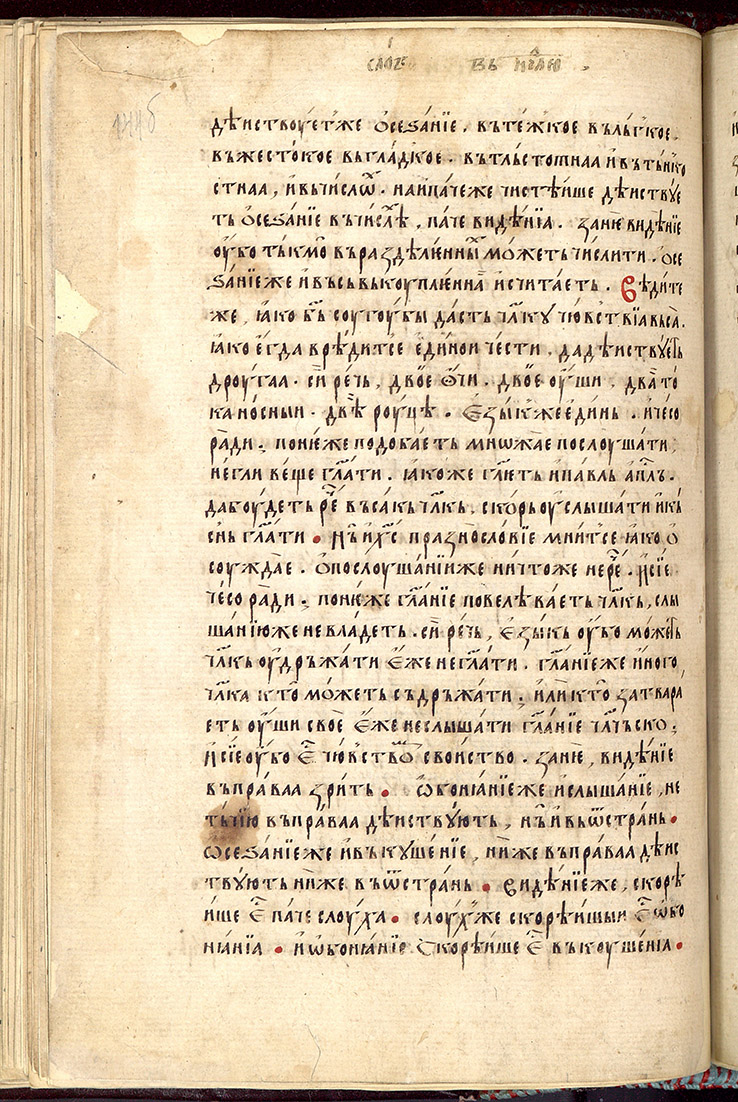 дѣиствоуетже ѻсеѕа́нїе. въте́жкое въльгкое.
въжесто́кое выгла́дкое. вътльстотнаа ивътьнко
стнаа, и҆вьчислѡⷨ. наипа́чеже чистѣише дѣи́ствꙋе
ть ѻ҆сеѕа́нїе въчи́слѣⷯ, па́че видѣ́нїа. занѥ видѣ́нїе
оу҆бо тькмѡ въраздѣлѥнныⷯ мо́жеть числити. ѻ҆се
ѕа́нїеже и҆въсьвькоуплѥннаа и҆считаеть. Вѣдите
же, ꙗко бь҃ соугоу҆бы да́сть чл҃кꙋ чю́вьствїа вьса̀.
ꙗко є҆гда врѣди́тсе є҆ди́нои че́сти. да дѣи́ствꙋеть
дроугаа. си́ рѣчь, дво́е ѻ҆́чи. дво́е оу҆́ши. два̀ то
ка но́сныи. двѣ̀ роу́цѣ. є҆зы́кже є҆ди́нь. и҆че́со
ра́ди; понѥ́же подоба́еть мно́жае послоу́шати,
не́гли ве́ще гл҃а́ти. ꙗкоже гл҃ѥть и҆па́вль а҆пⷭ҇ль.
да боу́деть реⷱ҇ въса́кь чл҃кь, ско́рь оу҆слы́шати и҆кь
снь гл҃а́ти. нь и҆ хⷭ҇ празнословїе мни́тсе ꙗко ѻ҆
соужда́е. ѻ҆послоуша́нїиже ничто́же не реⷱ҇. и҆сїе
че́со ра́ди; понѥ́же гл҃а́нїе повелѣва́еть чл҃кь, слы
ша́нїюже не вла́деть. си́ рѣчь, є҆зы́кь оу҆́бо мо́жеть
чл҃кь оу҆дръжа́ти є҆́же не гл҃а́ти. гл҃а́нїеже и҆но́го
чл҃ка кто̀ мо́жеть съдръжа́ти; и҆лѝ кто̀ затвара
еть оу҆́ши своѐ є҆́же не слы́шати гл҃а́нїе чл҃чьско;
и҆сїе оу҆́бо єⷭ҇ чю́вьствоⷨ сво́иство. занѥ, видѣ́нїе
въпра́ваа зри́ть. ѡ҆боня́нїеже и҆слы́шанїе, не
ты́чїю въпра́ваа дѣи́ствꙋють, нь̀ и҆ вьѿстра́нь.
ѡ҆сеѕа́нїеже и҆въкꙋше́нїе, ни́же въпра́ваа дѣис
твꙋ́ють ни́же въѿстра́нь. Видѣ́нїеже, скорѣ́
и҆ше єⷭ҇ па́че слоу́ха. слоу́хже скорѣ́ишыи єⷭ҇ ѡ҆бо
ня́нїа. и҆ѡ҆боня́нїе скорѣ́ише єⷭ҇ въкоуше́нїа.